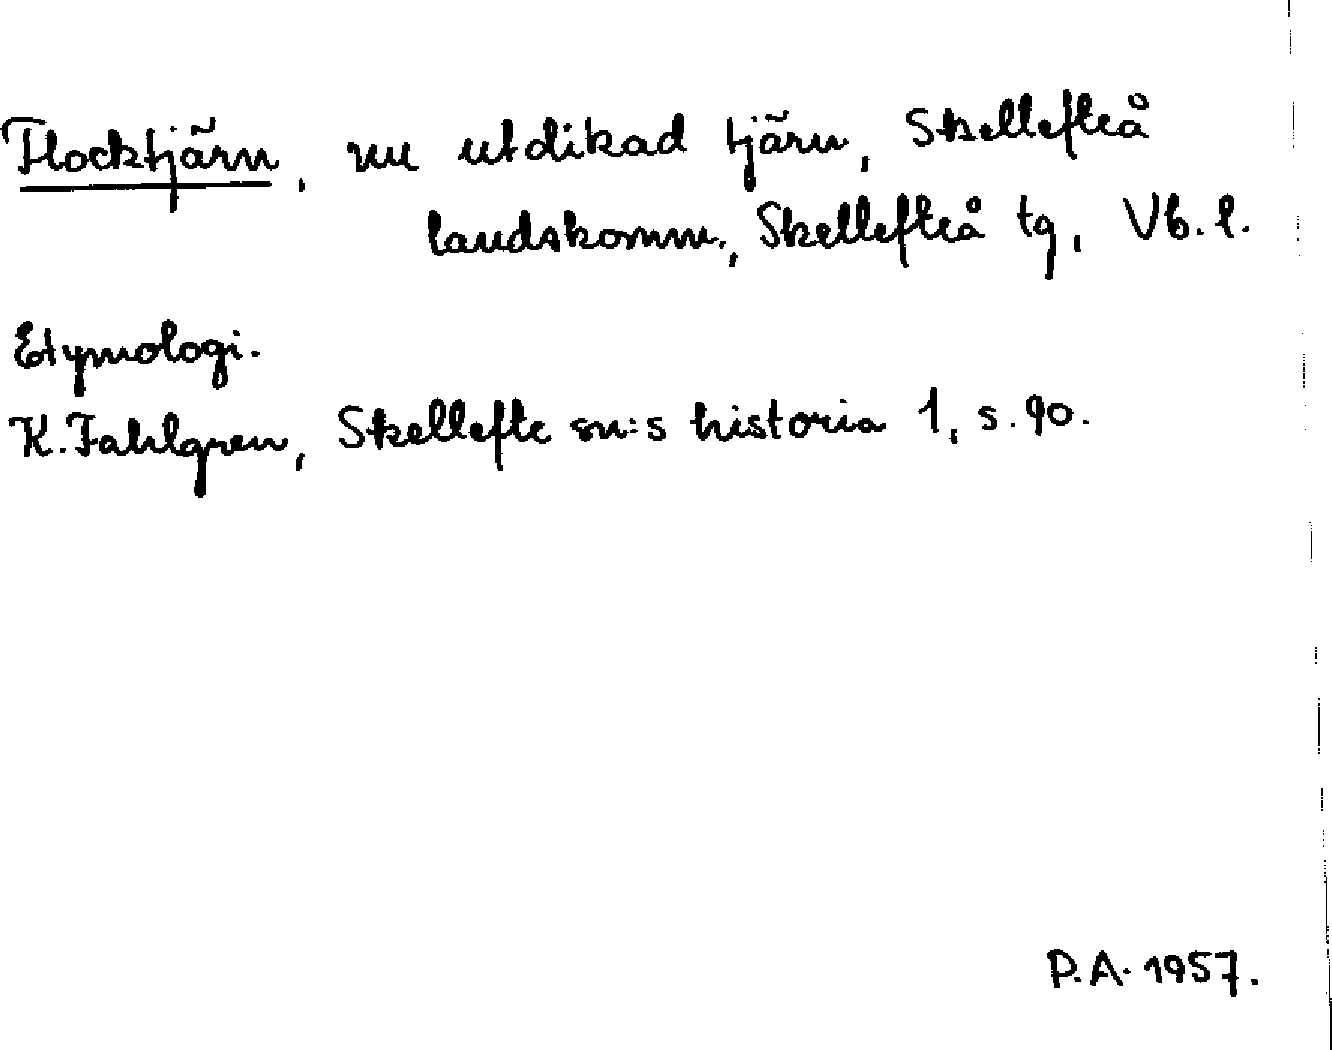 Flocktjärn, nu utdikad tjärn, Skellefteå
landskomm., Skellefteå tg, Vb. l.
Etymologi.
K. Fahlgren, Skellefte sn:s historia 1, s. 90.
P.A. 1957.